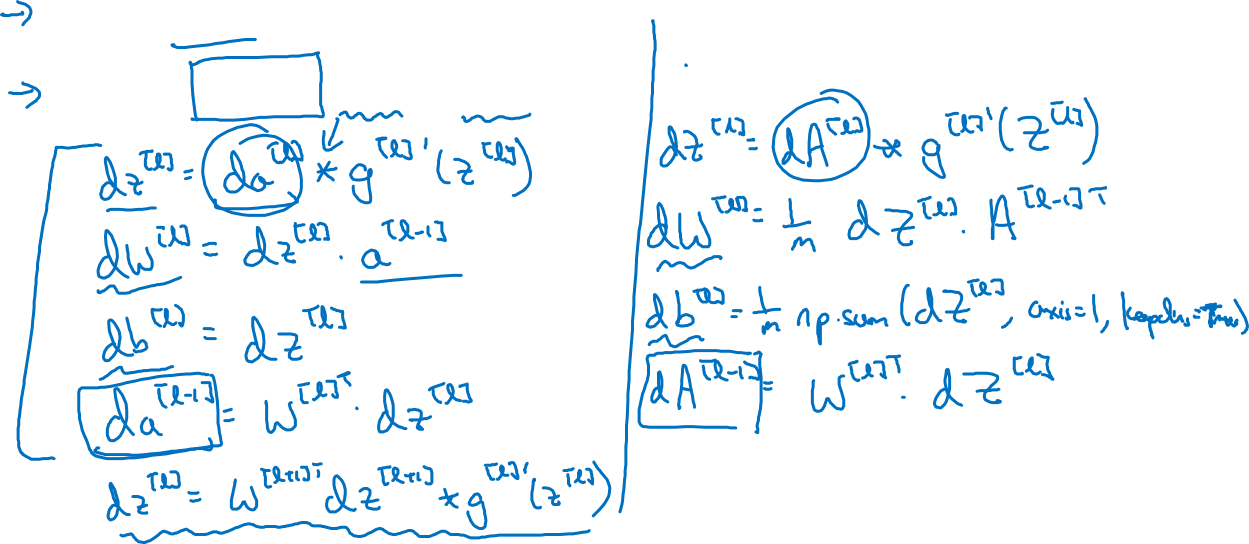 →
→
dz^[l] = da^[l] * g^[l]'(z^[l])
dW^[l] = dz^[l] · a^[l-1]
db^[l] = dz^[l]
da^[l-1] = W^[l]T · dz^[l]
dz^[l] = W^[l+1]T dz^[l+1] * g^[l]'(z^[l])
dZ^[l] = dA^[l] * g^[l]'(Z^[l])
dW^[l] = 1/m dZ^[l] · A^[l-1]T
db^[l] = 1/m np.sum(dZ^[l], axis=1, keepdims=True)
dA^[l-1] = W^[l]T · dZ^[l]